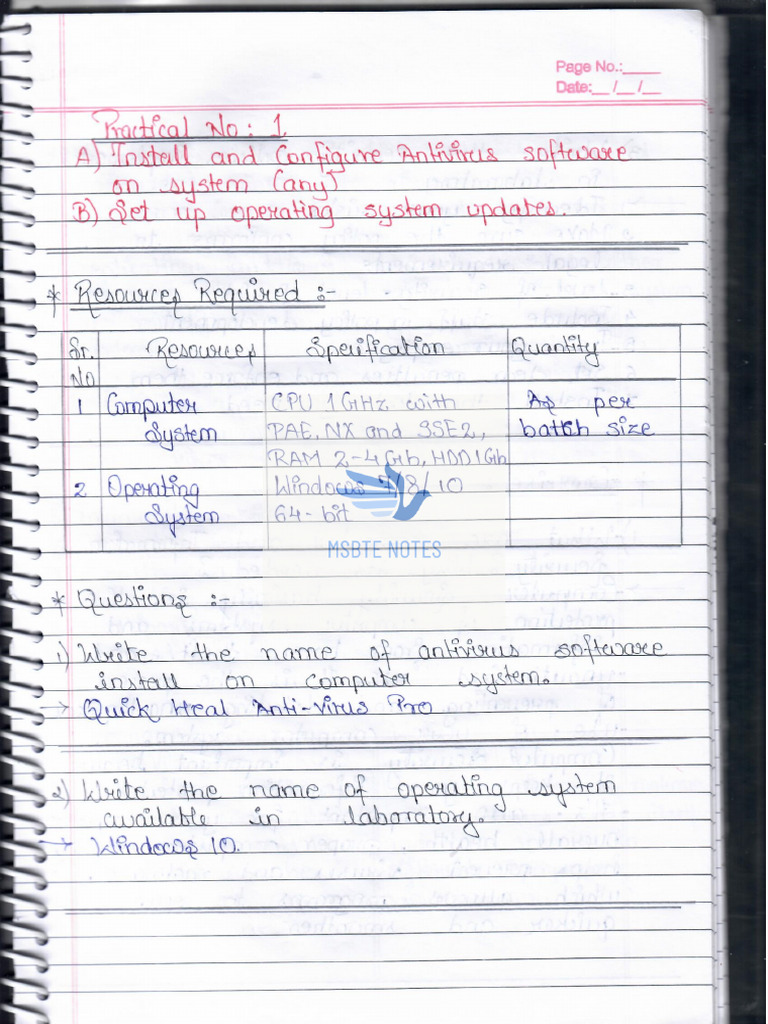 Page No.:____
Date:__/__/__
Practical No: 1
A) Install and Configure Antivirus software
on system (any)
B) Set up operating system updates.
* Resources Required :-
Sr. No | Resources | Specification | Quantity
1 | Computer System | CPU 1GHz with PAE, NX and SSE2, RAM 2-4Gb, HDD1Gb | As per batch size
2 | Operating System | Windows 7/8/10 64-bit
MSBTE NOTES
* Questions :-
1) Write the name of antivirus software
install on computer system.
→ Quick Heal Anti-virus Pro
2) Write the name of operating system
available in laboratory.
→ Windows 10.